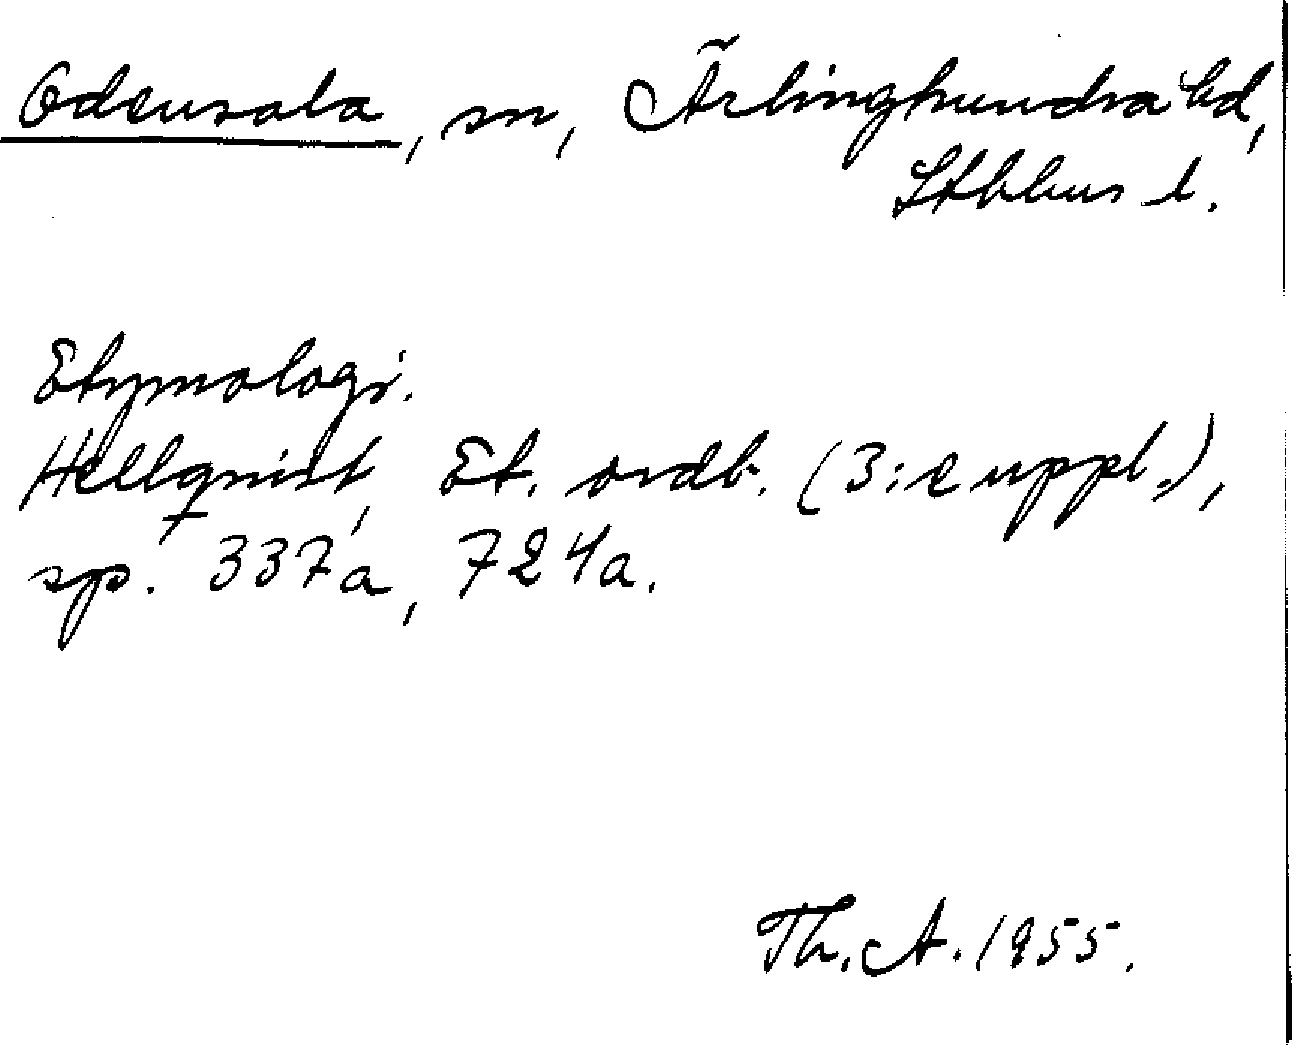 Odensala, sn, Ärlinghundra hd,
Sthlms l.
Etymologi.
Hellquist, Et. ordb. (3:e uppl.),
sp. 337a, 724a.
Th. A. 1955.